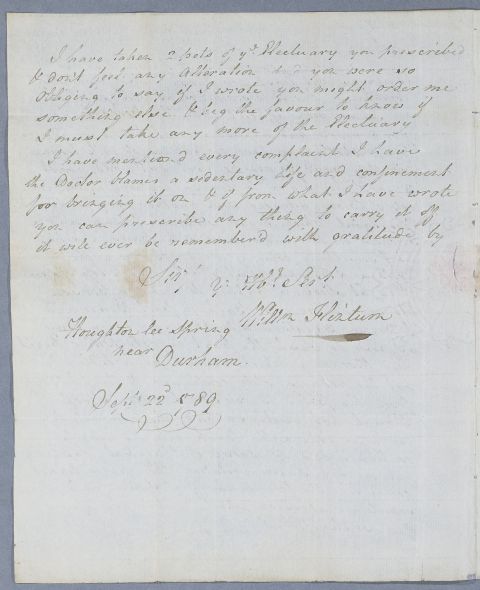 I have taken 2 pots of ye Electuary you prescribed
& dont feel any Alteration and you were so
Obliging to say if I wrote you might order me
something else & beg the favour to know if
I must take any more of the Electuary
I have mention'd every complaint I have
the Doctor blames a sedentary life and confinement
for bringing it on & if from what I have wrote
you can prescribe any thing to carry it off
it will ever be remember'd with gratitude by
Sir yr Hbl Servt
Willm Flintum
Houghton lee Spring
near
Durham.
Sept 22d 1789